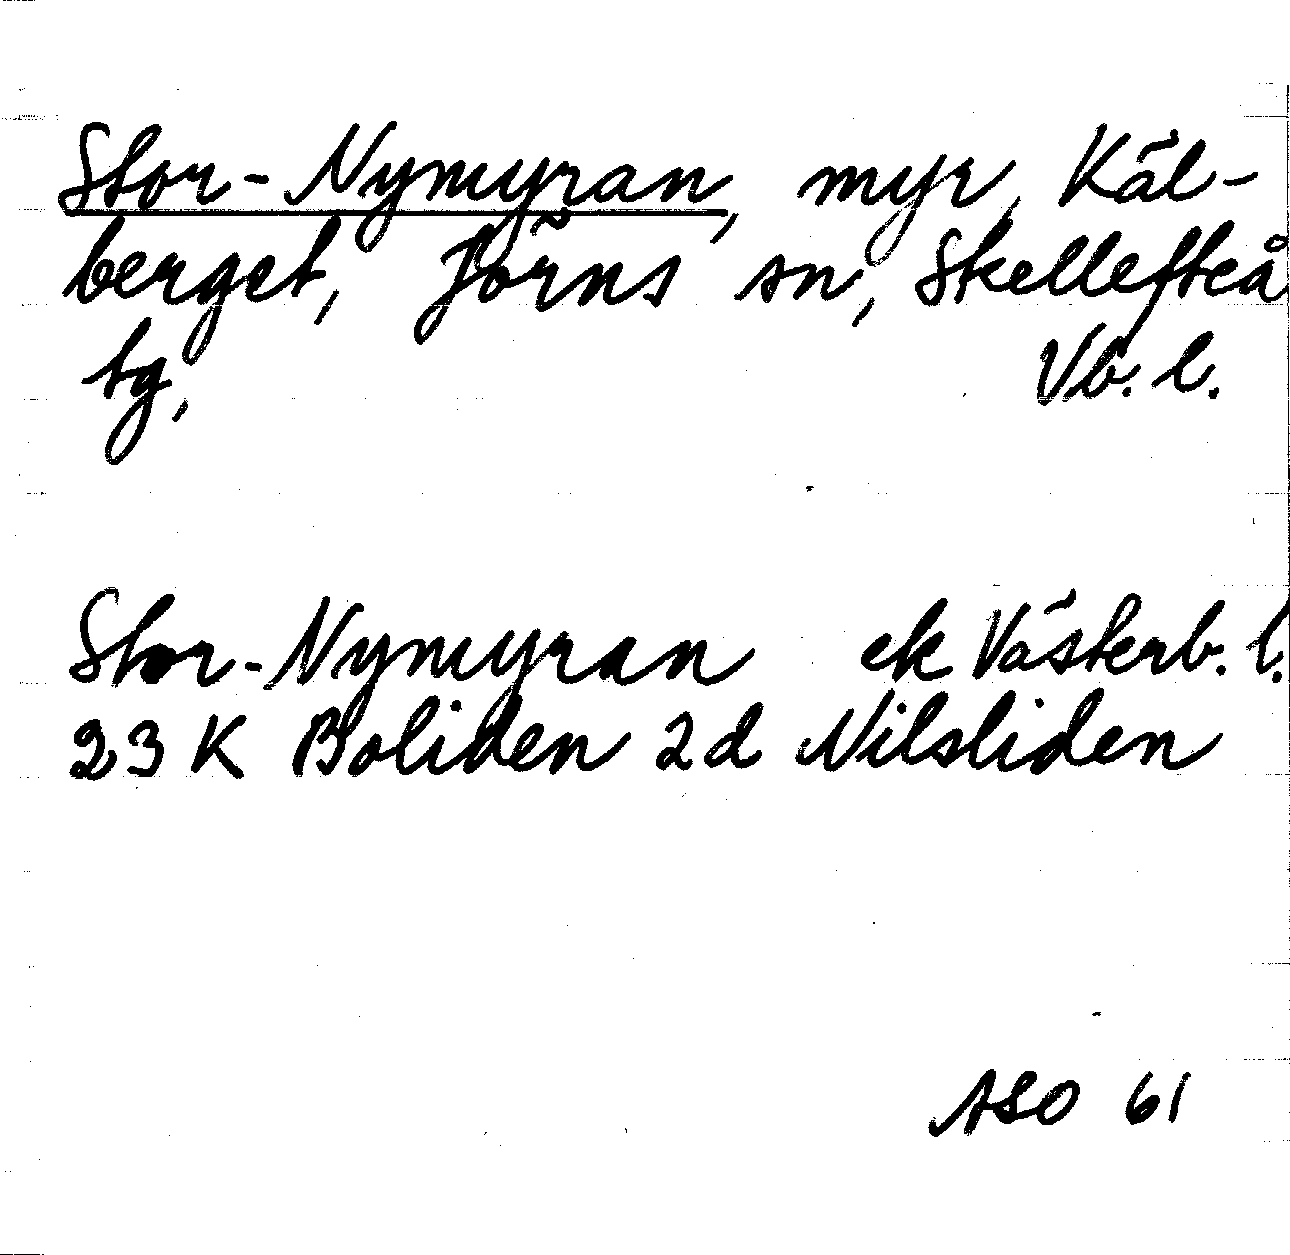 Stor-Nymyran, myr, Käl-
berget, Jörns sn, Skellefteå
tg, Vb. l.
Stor-Nymyran ek Västerb. l.
23 K Boliden 2d Nilsliden
ASO 61